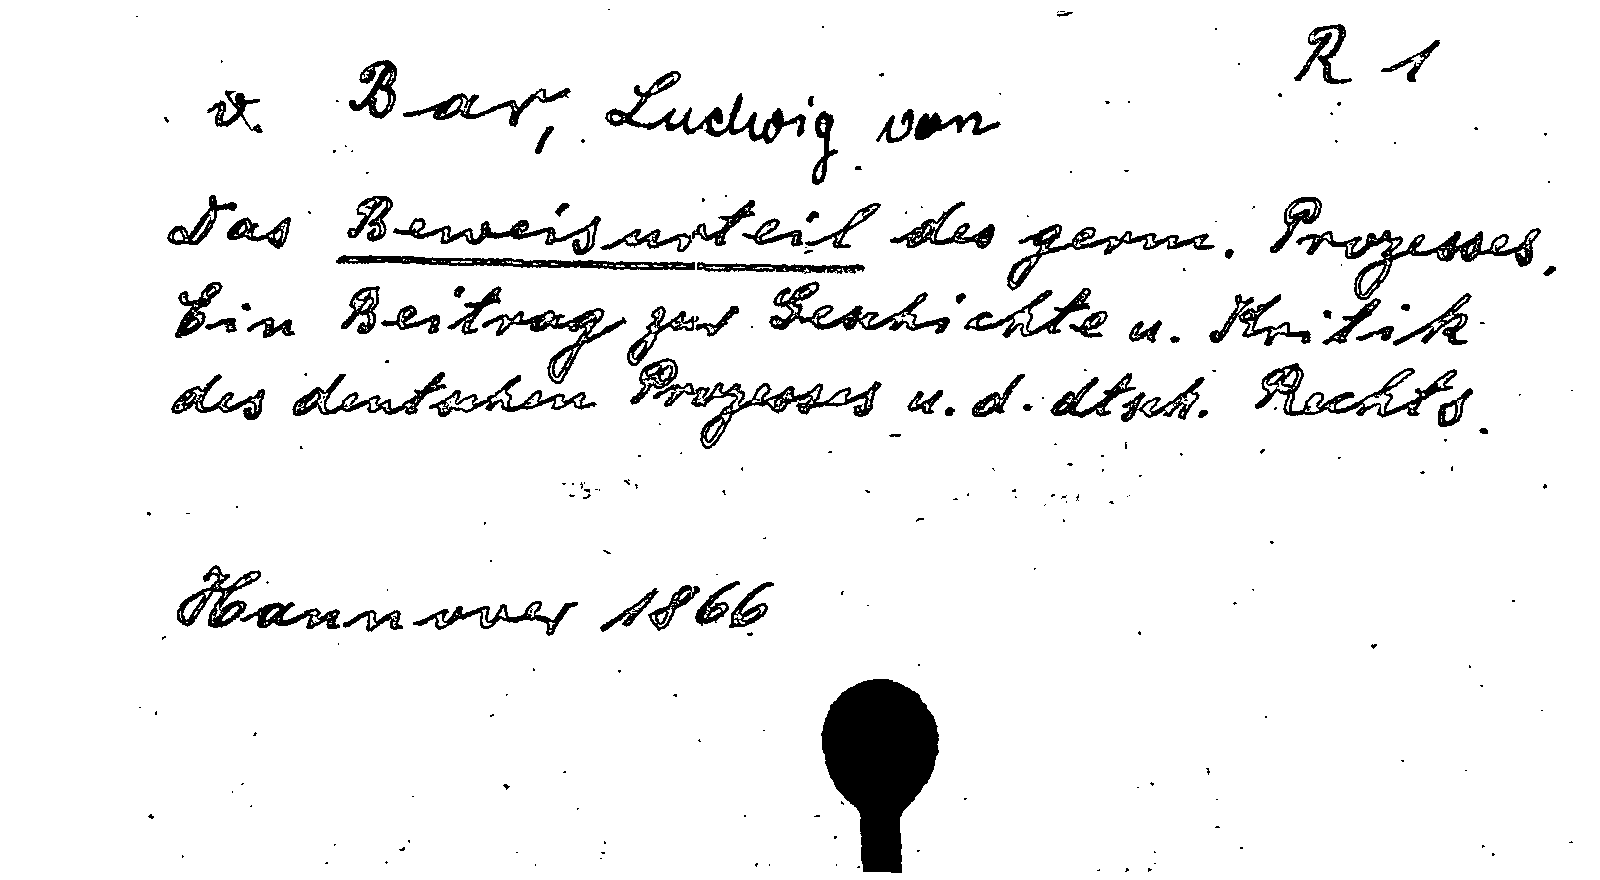 R 1
v. Bar, Ludwig von
Das Beweisurteil des germ. Prozesses.
Ein Beitrag zur Geschichte u. Kritik
des deutschen Prozesses u. d. dtsch. Rechts.
Hannover 1866